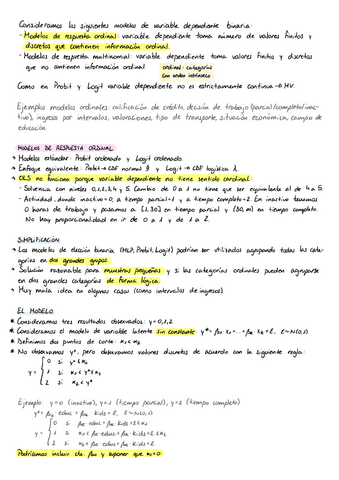 Consideramos los siguientes modelos de variable dependiente binaria:
- Modelos de respuesta ordinal: variable dependiente toma número de valores finitos y
discretos que contienen información ordinal.
- Modelos de respuesta multinomial: variable dependiente toma valores finitos y discretos
que no contienen información ordinal.
ordinal: categorías
con orden intrínseco
Como en Probit y Logit variable dependiente no es estrictamente continua → MV.
Ejemplos modelos ordinales: calificación de crédito, decisión de trabajo (parcial/completo/inac-
tivo), ingresos por intervalos, valoraciones, tipo de transporte, situación económica, campo de
educación
MODELOS DE RESPUESTA ORDINAL
→ Modelos estándar: Probit ordenado y Logit ordenado.
→ Enfoque equivalente: Probit → CDF normal y Logit → CDF logística
→ OLS no funciona porque variable dependiente no tiene sentido cardinal.
- Solvencia con niveles 0,1,2,3,4 y 5. Cambio de 0 a 1 no tiene que ser equivalente al de 4 a 5.
- Actividad, donde inactivo=0, a tiempo parcial=1 y a tiempo completo=2. En inactivo tenemos
0 horas de trabajo y pasamos a [1,30] en tiempo parcial y (30,∞) en tiempo completo.
No hay proporcionalidad en ir de 0 a 1 y de 1 a 2.
SIMPLIFICACIÓN
→ Los modelos de elección binaria (MLP, Probit, Logit) podrían ser utilizados agrupando todas las cate-
gorías en dos grandes grupos.
→ Solución razonable para muestras pequeñas y si las categorías ordinales pueden agruparse
en dos grandes categorías de forma lógica.
→ Muy mala idea en algunos casos (como intervalos de ingresos)
EL MODELO
* Consideramos tres resultados observados: y=0,1,2
* Consideramos el modelo de variable latente sin constante: y*=β₁ x₁ + ... + βₖ xₖ + ε, ε~N(0,1)
* Definimos dos puntos de corte: α₁ < α₂
* No observamos y*, pero observamos valores discretos de acuerdo con la siguiente regla:
0 si y* ≤ α₁
y = 1 si α₁ < y* ≤ α₂
2 si α₂ < y*
Ejemplo: y=0 (inactivo), y=1 (tiempo parcial), y=2 (tiempo completo)
y* = β₁ educ + β₂ kids + ε, ε~N(0,1)
0 si β₁ educ + β₂ kids + ε ≤ α₁
y = 1 si α₁ < β₁ educ + β₂ kids + ε ≤ α₂
2 si α₂ < β₁ educ + β₂ kids + ε
Podríamos incluir cte. β₀ y suponer que α₁=0.